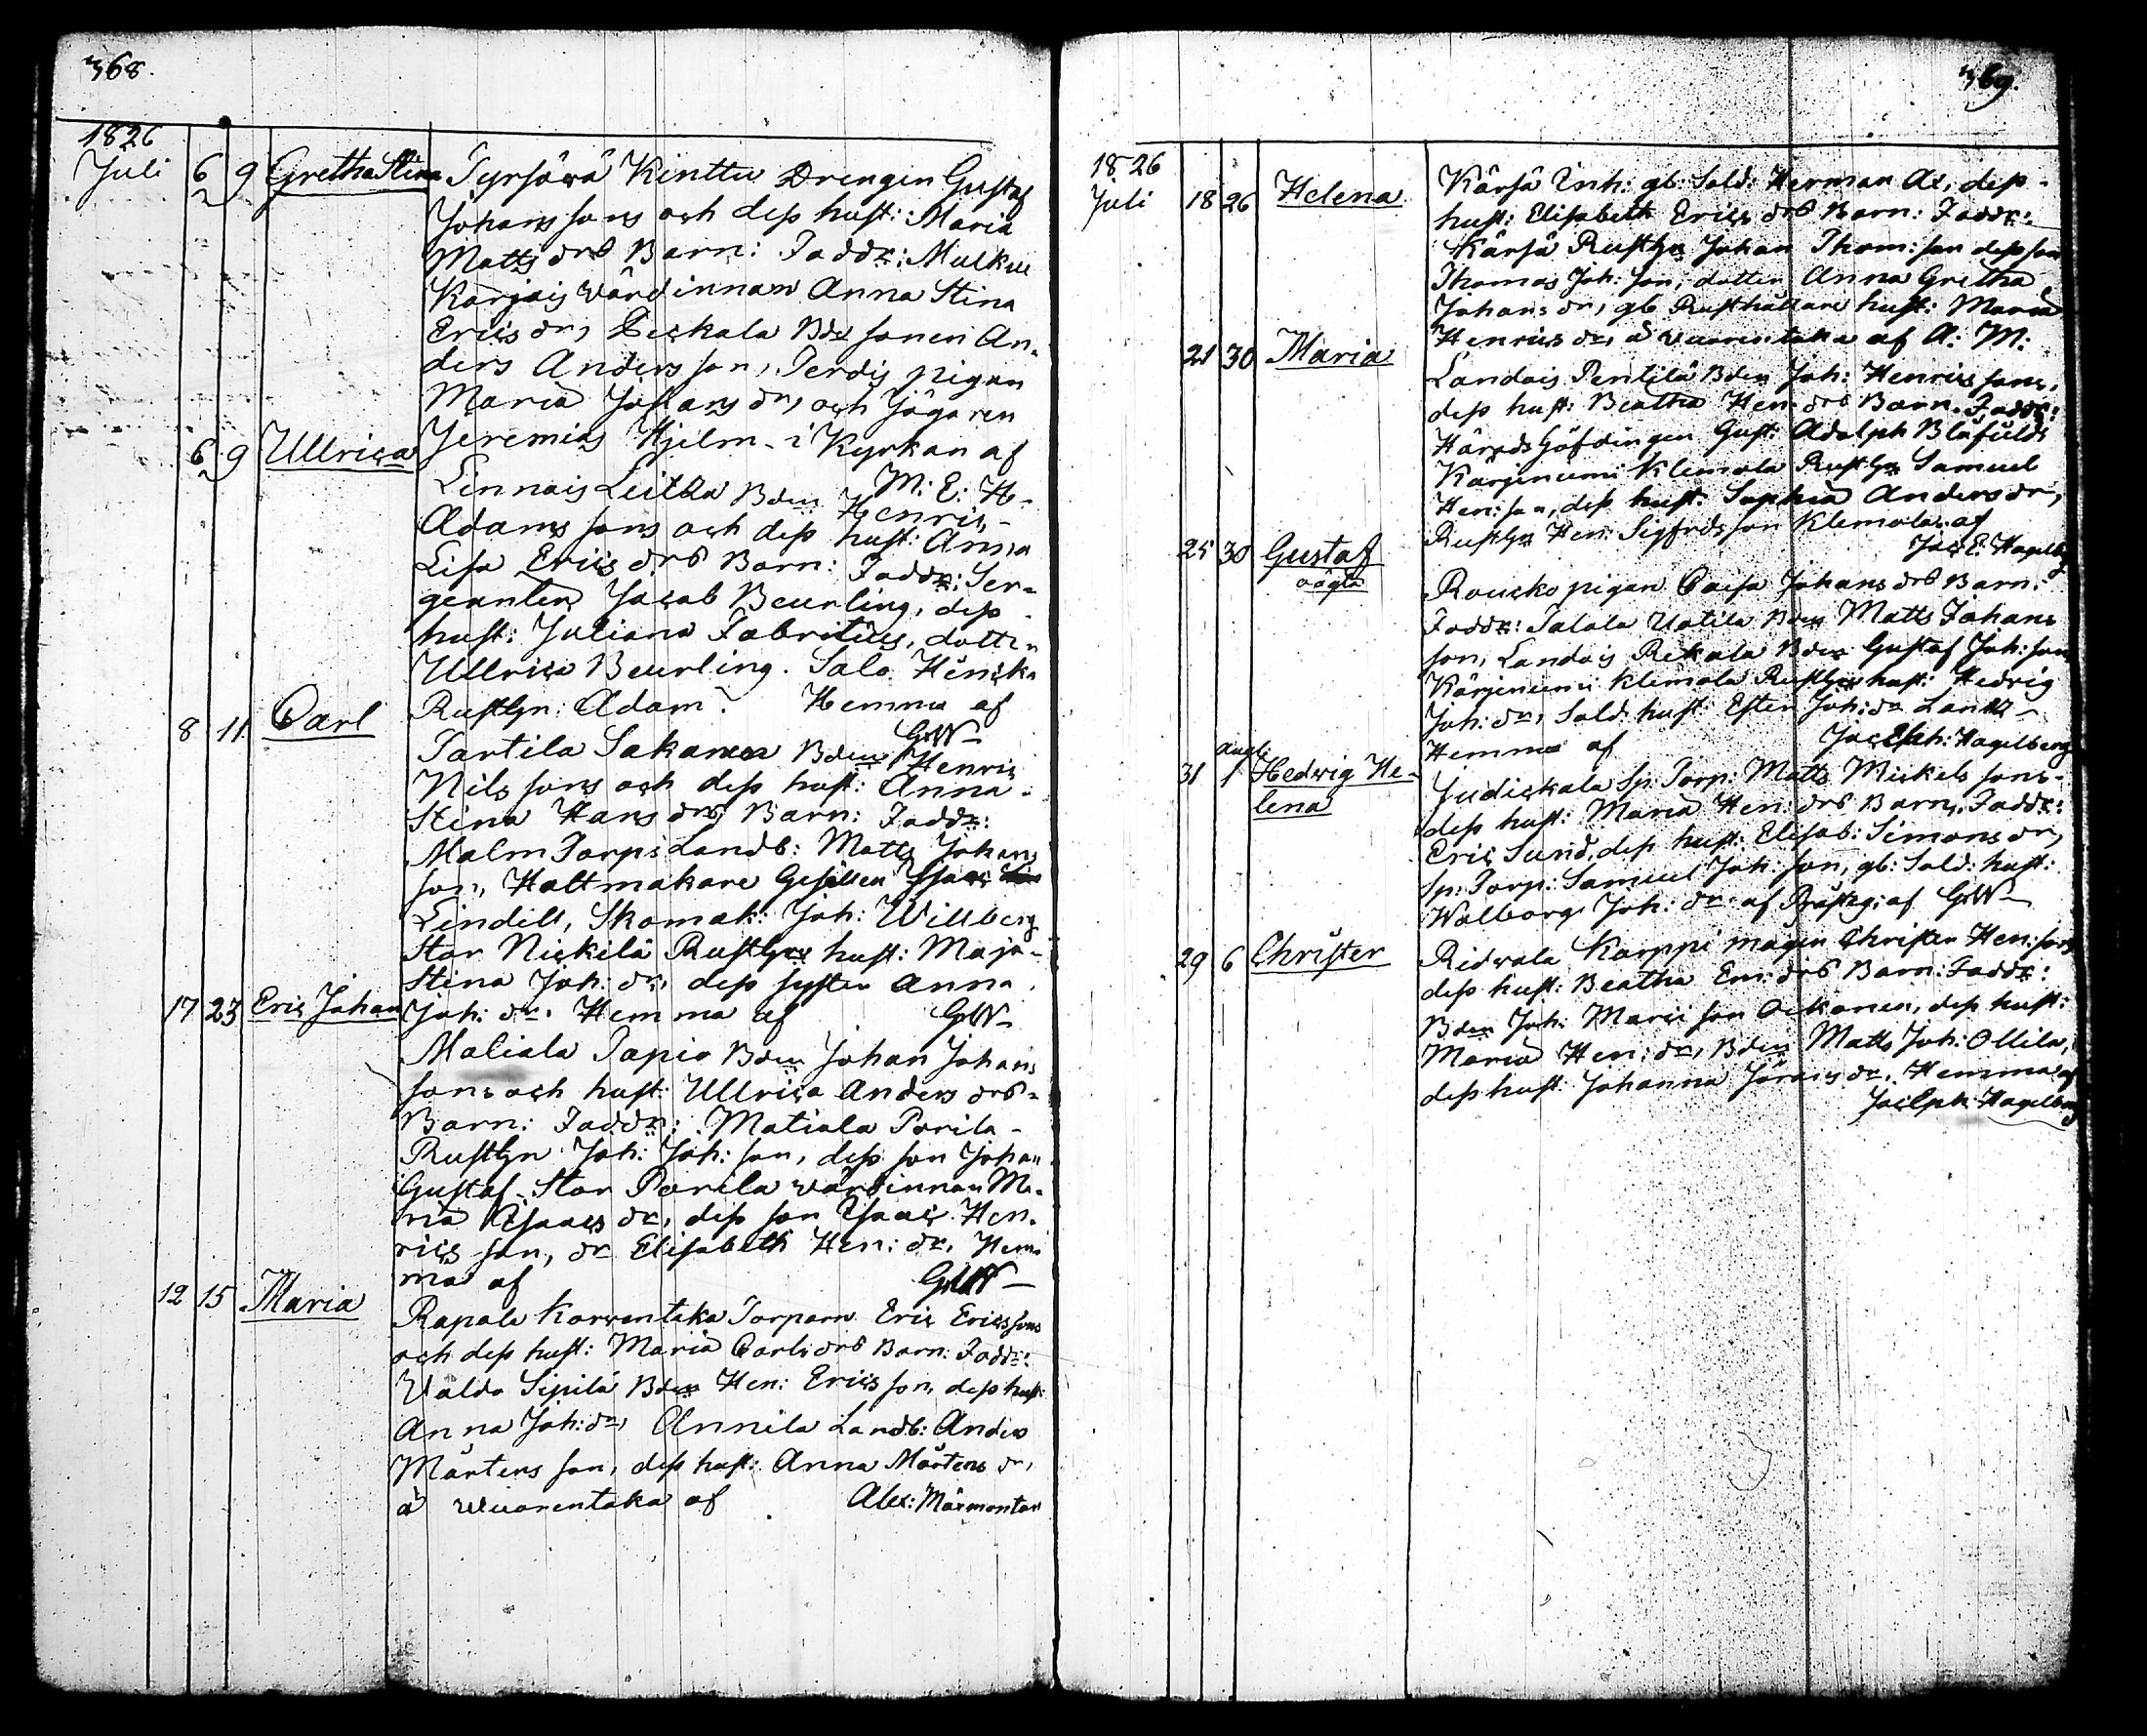 368.
1826
Juli 6 9 Gretha Stina Tyrsäwä Kinttu Drengen Gustaf
Johans sons och dess hust: Maria
Matts drs Barn: Faddr: Mulkui
Karjais värdinnan Anna Stina
Erics dr, Beckala Bde sonen An-
ders Anders son, Perdis pigan
Maria Johans dr, och Jägaren
Jeremias Hjelm - i Kyrkan af
M: E: H-
6 9 Ullrica Lennais Leitka Bden Henric
Adams sons och dess hust: Anna
Lisa Erics drs Barn: Faddr: Ser-
geanten Jacob Beurling, dess
hust: Juliana Fabritius, dottr:
Ullrica Beurling. Salo Heicka
Rusthn: Adam. Hemma af
GW-
8 11 Carl Partila Sakaren Bden Henric
Nils sons och dess hust: Anna-
Stina Hans drs Barn: Faddr:
Malm Torps Landb: Matts Johans
son, Hattmakare Gesällen Isaac
Lindell, Skomak: Joh: Willberg
Stor Nickilä Rusthns hust: Maja-
Stina Joh: dr, dess syster Anna
Joh: dr. Hemma af GW-
17 23 Eric Johan Maliala Papio Bden Johan Johans
sons och hust: Ullrica Anders drs-
Barn: Faddr: Matiala Porila-
Rusthn Joh: Joh: son, dess son Johan
Gustaf. Stor Porila värdinnan Ma-
ria Isaacs dr, dess son Isaac Hen-
rics son, dr Elisabeth Hen: dr, Hem-
ma af GW-
12 15 Maria Rapala Korventaka Torparn Eric Ericssons
och dess hust: Maria Carls drs Barn: Faddr:
Uldo Sipilä Bden Hen: Erics son, dess hust:
Anna Joh: dr, Annila Landb: Anders
Mårtens son, dess hust: Anna Mårtens dr,
å Wuorentaka af Alex: Marmontan
369.
1826
Juli 18 26 Helena Kärsä Inh: gb: Sold: Herman Ax, dess-
hust: Elisabeth Erics drs Barn: Faddr:
Kärsä Rusthn Johan Thom: son dess son
Thomas Joh: son, dotter Anna Gretha
Johans dr, gb Rusthållare hust: Maria
Henrics dr, å Wuorentaka af A: M:
21 30 Maria Landois Pentilä Bden Joh: Henrics sons,
dess hust: Beatha Hen: drs Barn. Faddr:
Häradshöfdingen Gust: Adolph Blåfield
Karjenumi Klemola Rusthn Samuel
Hen: son, dess hust. Sophia Anders dr,
Rusthn Hen: Sigfrids son Klemola af
Jac: E: Hagelbg
25 30 Gustaf
oägta Roucko pigan Caisa Johans drs Barn:
Faddr: Talala Uotila Bden Matts Johans
son, Landois Rekola Bden Gustaf Joh: son
Kärjenumi Klemola Rusthns hust: Hedvig
Joh: dr, Sold: hust: Ester Joh: dr Lantz-
Hemma af Jac Eph: Hagelberg
Augti
31 1 Hedwig He-
lena Judickala Sp: Torp: Matts Mickels sons-
dess hust: Maria Hen: drs Barn, Faddr:
Eric Sund, dess hust: Elisab: Simons dr,
Sp: Torp: Samuel Joh: son, gb: Sold: hust:
Walborg Joh: dr. af Prästg: af GW-
29 6 Christer Ridvala Karppi mågen Christer Hen: sons
dess hust: Beatha Em: drs Barn: Faddr:
Bden Joh: Marci son Ockonen, dess hust:
Maria Hen: dr, Bden Matts Joh: Ollila,
dess hust: Johanna Jörans dr, Hemma af
Jac Eph: Hagelberg